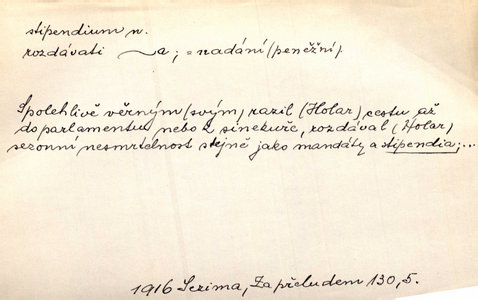 stipendium n.
rozdávati ~a; = nadání (peněžní)
Spolehlivě věrným (svým) razil (Holar) cestu až
do parlamentu nebo k sinekuře, rozdával (Holar)
sezonní nesmrtelnost stejně jako mandáty a stipendia;...
1916 Sezima, Za přeludem 130, 5.